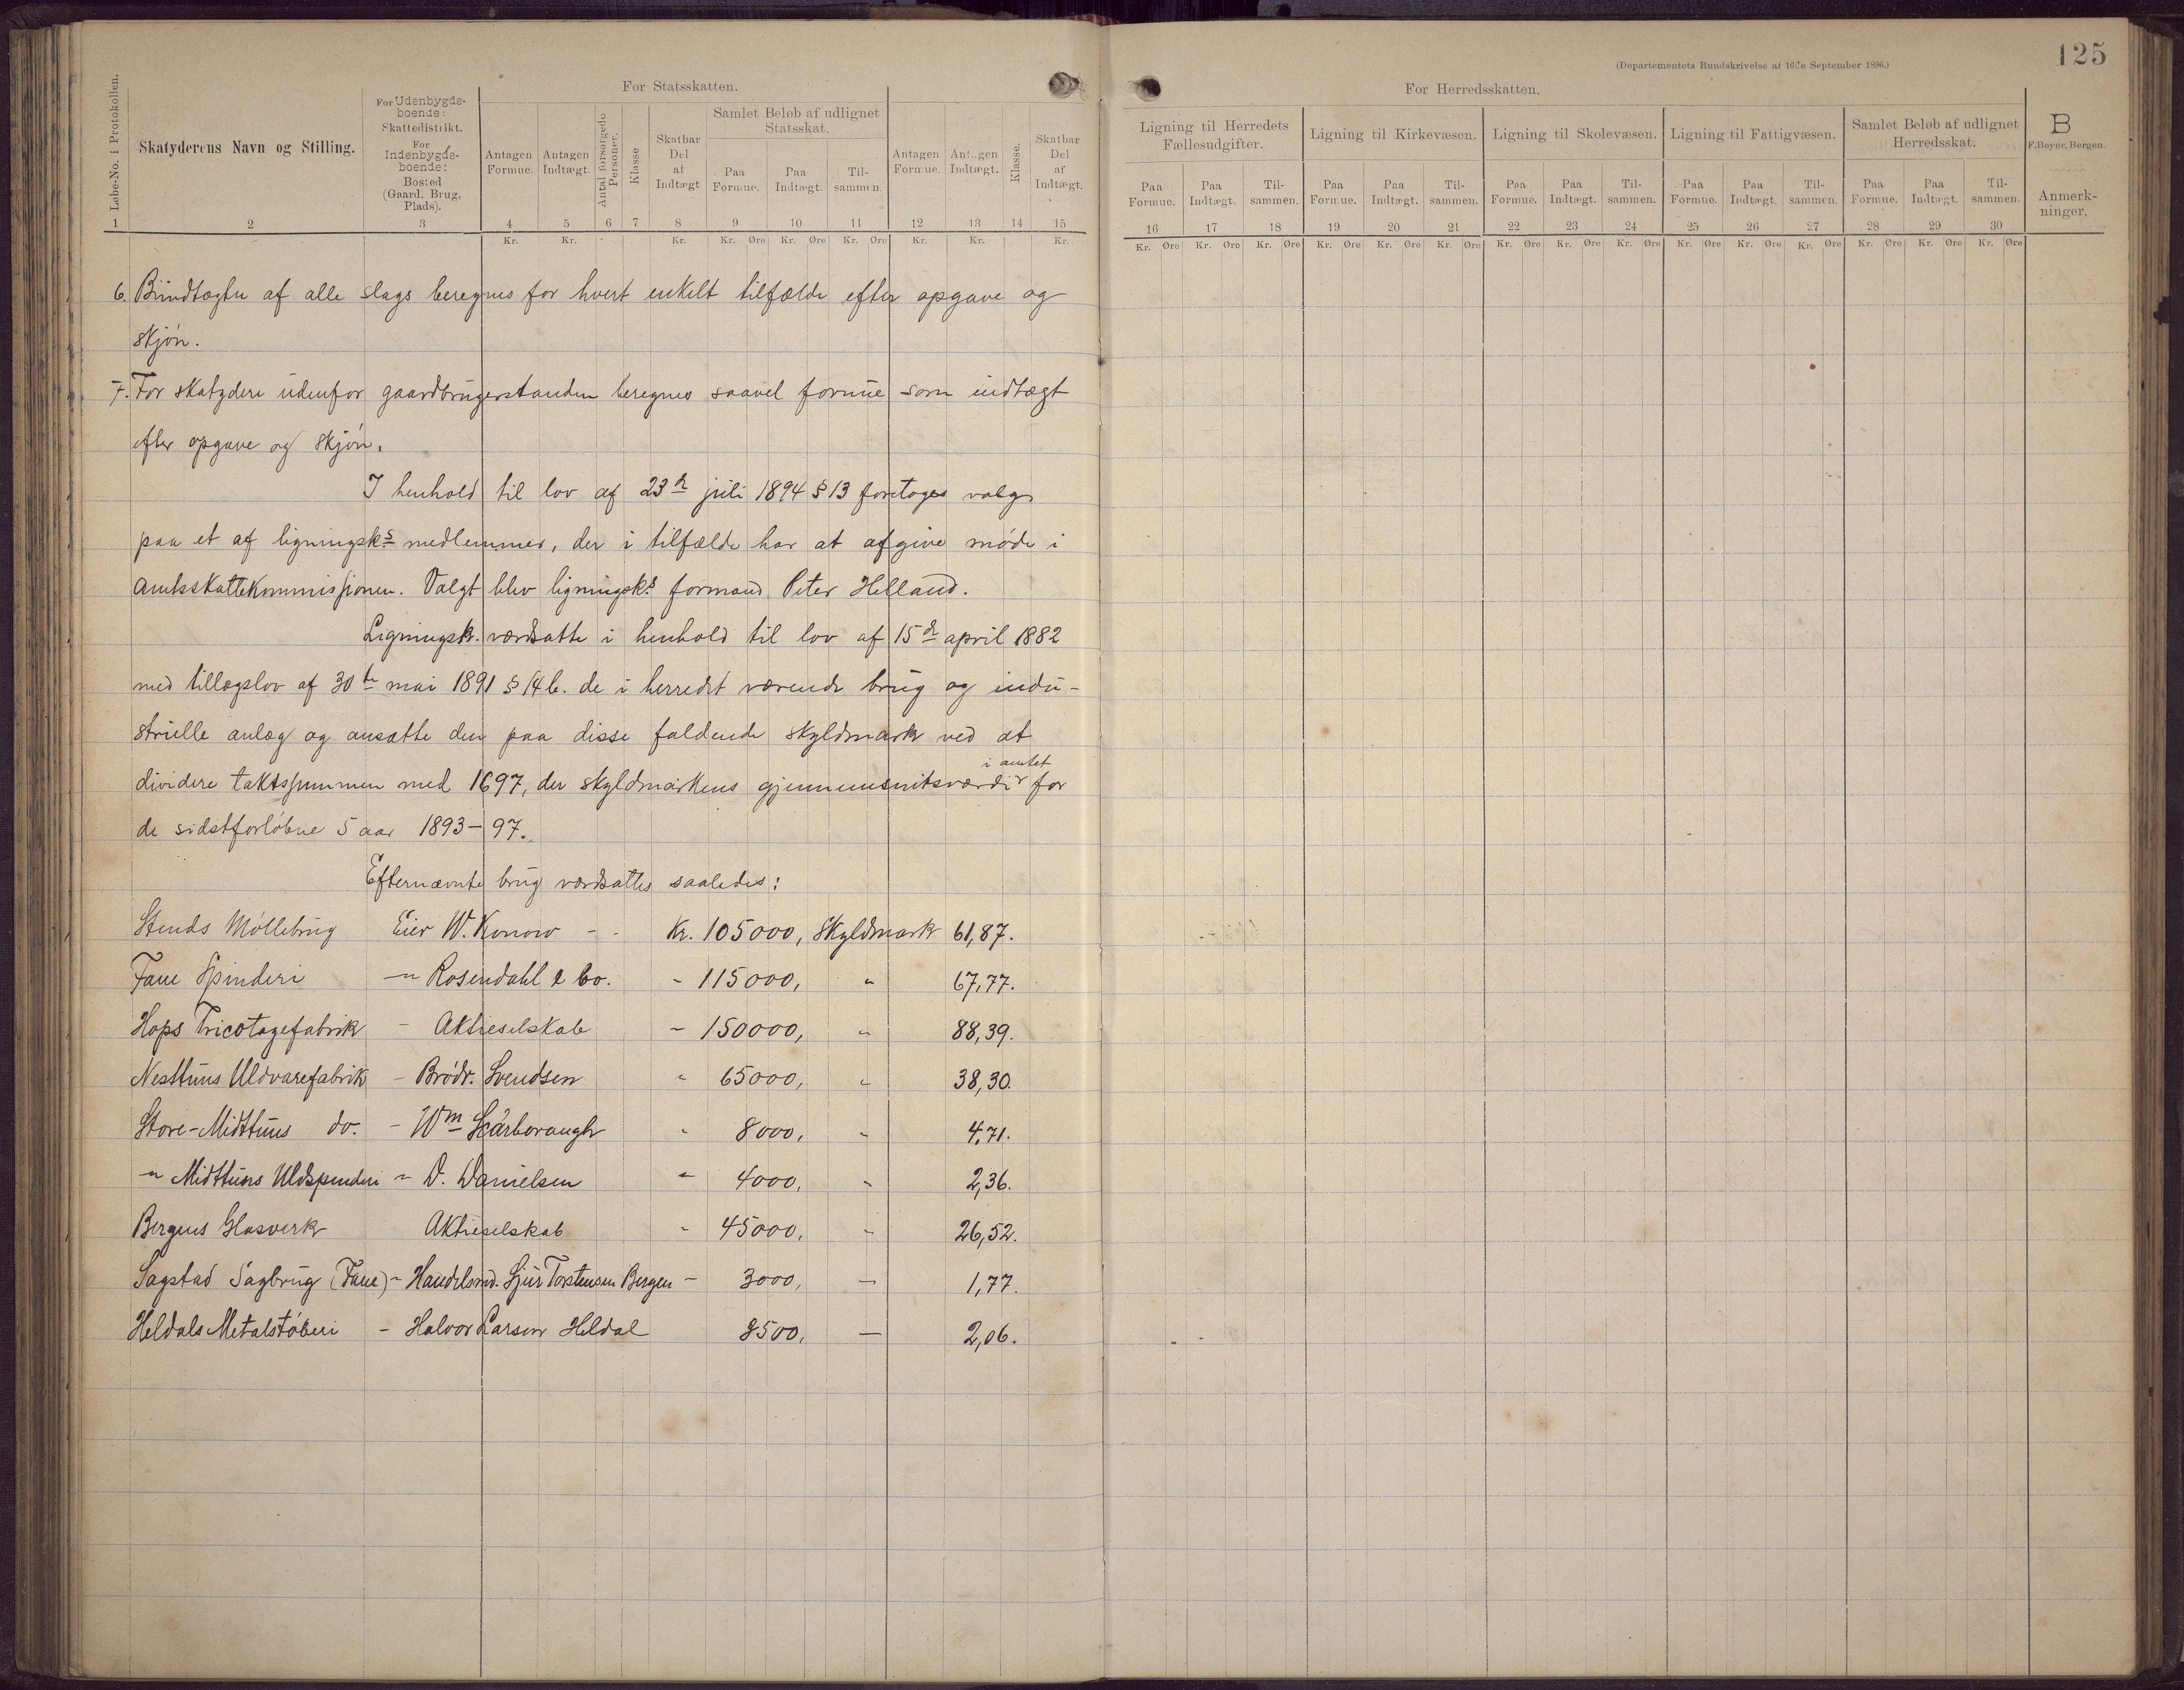 125
(Departementets Rundskrivelse af 16de September 1896.)
For Statsskatten.
For Herredsskatten.
Løbe-No. i Protokollen.
Skatyderens Navn og Stilling.
For Udenbygds-
boende:
Skattedistrikt.
For
Indenbygds-
boende:
Bosted
(Gaard, Brug,
Plads).
Antagen
Formue.
Antagen
Indtægt.
Antal forsørgede
Personer.
Klasse
Skatbar
Del
af
Indtægt
Samlet Beløb af udlignet
Statsskat.
Paa
Formue.
Paa
Indtægt.
Til-
sammen.
Antagen
Formue.
Antagen
Indtægt.
Klasse.
Skatbar
Del
af
Indtægt.
Ligning til Herredets
Fællesudgifter.
Ligning til Kirkevæsen.
Ligning til Skolevæsen.
Ligning til Fattigvæsen.
Samlet Beløb af udlignet
Herredsskat.
B
F. Beyer, Bergen.
Paa Formue. Paa Indtægt. Til-sammen. Paa Formue. Paa Indtægt. Til-sammen. Paa Formue. Paa Indtægt. Til-sammen. Paa Formue. Paa Indtægt. Til-sammen. Paa Formue. Paa Indtægt. Til-sammen.
Anmerk-
ninger.
1 2 3 4 5 6 7 8 9 10 11 12 13 14 15 16 17 18 19 20 21 22 23 24 25 26 27 28 29 30
Kr. Kr. Kr. Kr. Øre Kr. Øre Kr. Øre Kr. Kr. Kr. Kr. Øre Kr. Øre Kr. Øre Kr. Øre Kr. Øre Kr. Øre Kr. Øre Kr. Øre Kr. Øre Kr. Øre Kr. Øre Kr. Øre Kr. Øre Kr. Øre Kr. Øre
6. Biindtægter af alle slags beregnes for hvert enkelt tilfælde efter opgave og
skjøn.
7. For skatydere udenfor gaardbrugerstanden beregnes saavel formue som indtægt
efter opgave og skjøn.
I henhold til lov af 23de juli 1894 § 13 foretoges valg
paa et af ligningsk.s medlemmer, der i tilfælde har at afgive møde i
Amtsskattekommissionen. Valgt blev ligningsk.s formand Peter Helland.
Ligningsk. værdsatte i henhold til lov af 15de april 1882
med tillægslov af 30te mai 1891 § 14 b. de i herredet værende brug og indu-
strielle anlæg og ansatte den paa disse faldende skyldmark ved at
dividere takstsummen med 1697, der skyldmarkens gjennemsnitsværdi i amtet for
de sidstforløbne 5 aar 1893–97.
Efternævnte brug værdsattes saaledes:
Stends Møllebrug Eier W. Konow - - Kr. 105000, Skyldmark 61,87.
Fane Spinderi -"- Rosendahl & Co. - 115000, " 67,77.
Hops Tricotagefabrik - Aktieselskab - 150000, " 88,39.
Nesttuns Uldvarefabrik - Brødr. Svendsen " 65000, " 38,30.
Store-Midttuns do. - Wm Scarborough " 8000, " 4,71.
-"- Midttuns Uldspinderi - D. Danielsen " 4000, " 2,36.
Bergens Glasverk Aktieselskab " 45000, " 26,52.
Sagstad Sagbrug (Fane) - Handelsmd. Sjur Torstensen Bergen - 3000, — 1,77.
Heldals Metalstøberi - Halvor Larsen Heldal 3500, — 2,06.